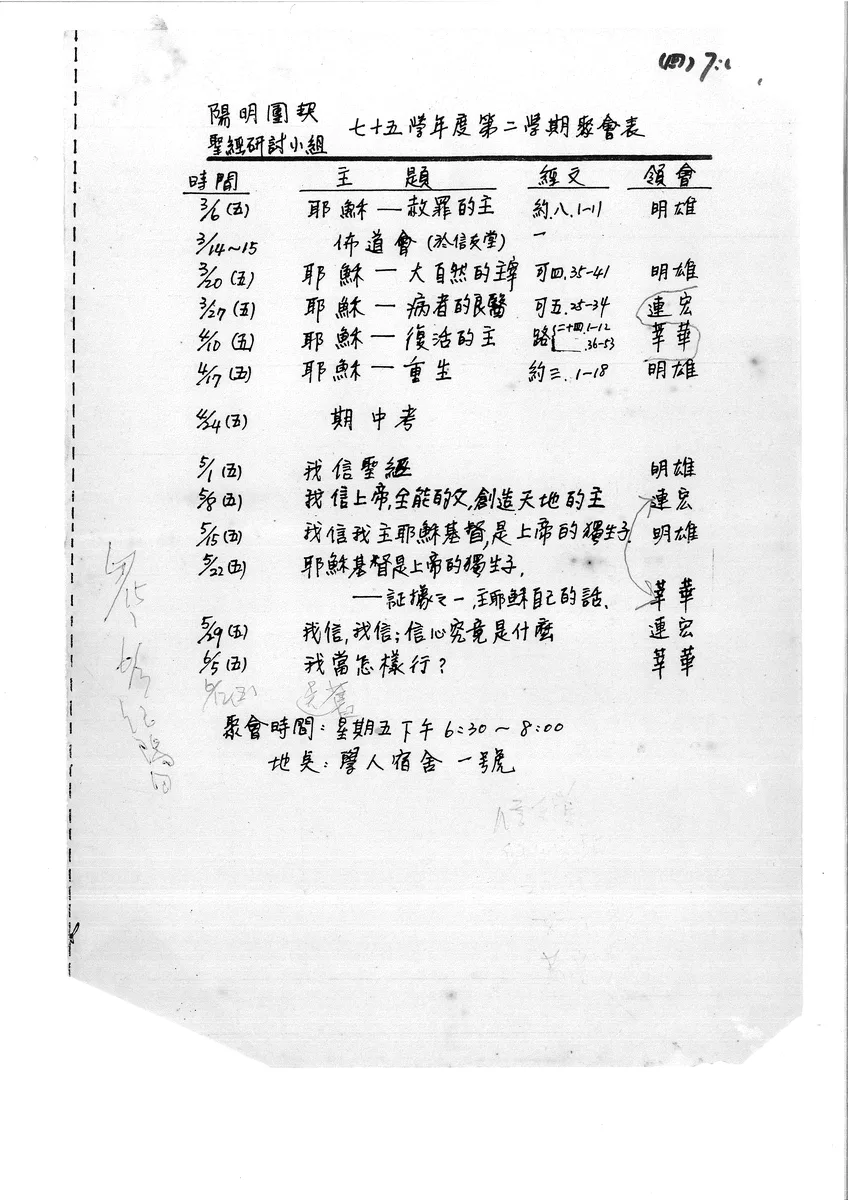 (四) 7:
陽明團契
聖經研討小組 七十五學年度第二學期聚會表
時間 主題 經文 領會
3/6(五) 耶穌—赦罪的主 約.八.1-11 明雄
3/14~15 佈道會(於信友堂) —
3/20(五) 耶穌—大自然的主宰 可四.35-41 明雄
3/27(五) 耶穌—病者的良醫 可五.25-34 連宏
4/10(五) 耶穌—復活的主 路{二十四.1-12 .36-53 莘華
4/17(五) 耶穌—重生 約三.1-18 明雄
4/24(五) 期中考
5/1(五) 我信聖經 明雄
5/8(五) 我信上帝,全能的父,創造天地的主 連宏
5/15(五) 我信我主耶穌基督,是上帝的獨生子. 明雄
5/22(五) 耶穌基督是上帝的獨生子,
——証據之一,主耶穌自己的話. 莘華
5/29(五) 我信,我信;信心究竟是什麼 連宏
6/5(五) 我當怎樣行? 莘華
6/12(五) 送舊
聚會時間:星期五下午6:30~8:00
地點:學人宿舍一號